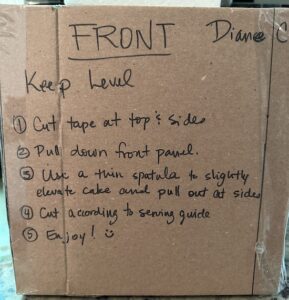 FRONT Diane C
Keep Level
① Cut tape at top & sides
② Pull down front panel.
③ Use a thin spatula to slightly
elevate cake and pull out at sides
④ Cut according to serving guide
⑤ Enjoy! ☺